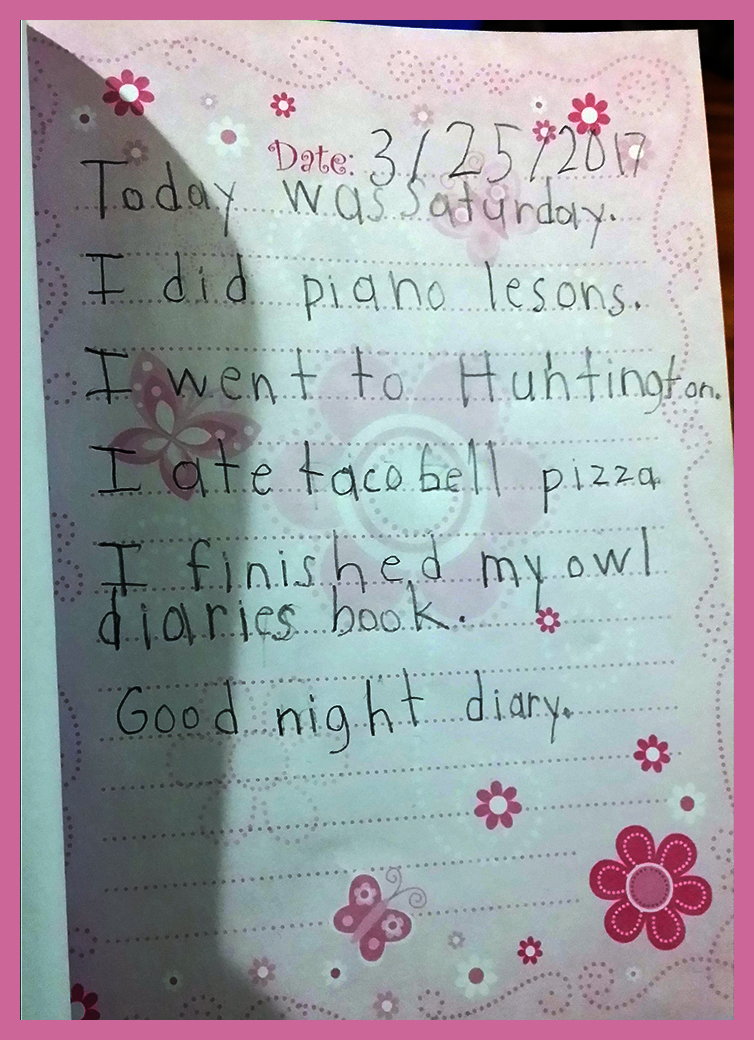 Date: 3/25/2017
Today was Saturday.
I did piano lesons.
I went to Huntington.
I ate taco bell pizza
I finished my owl
diaries book.
Good night diary.